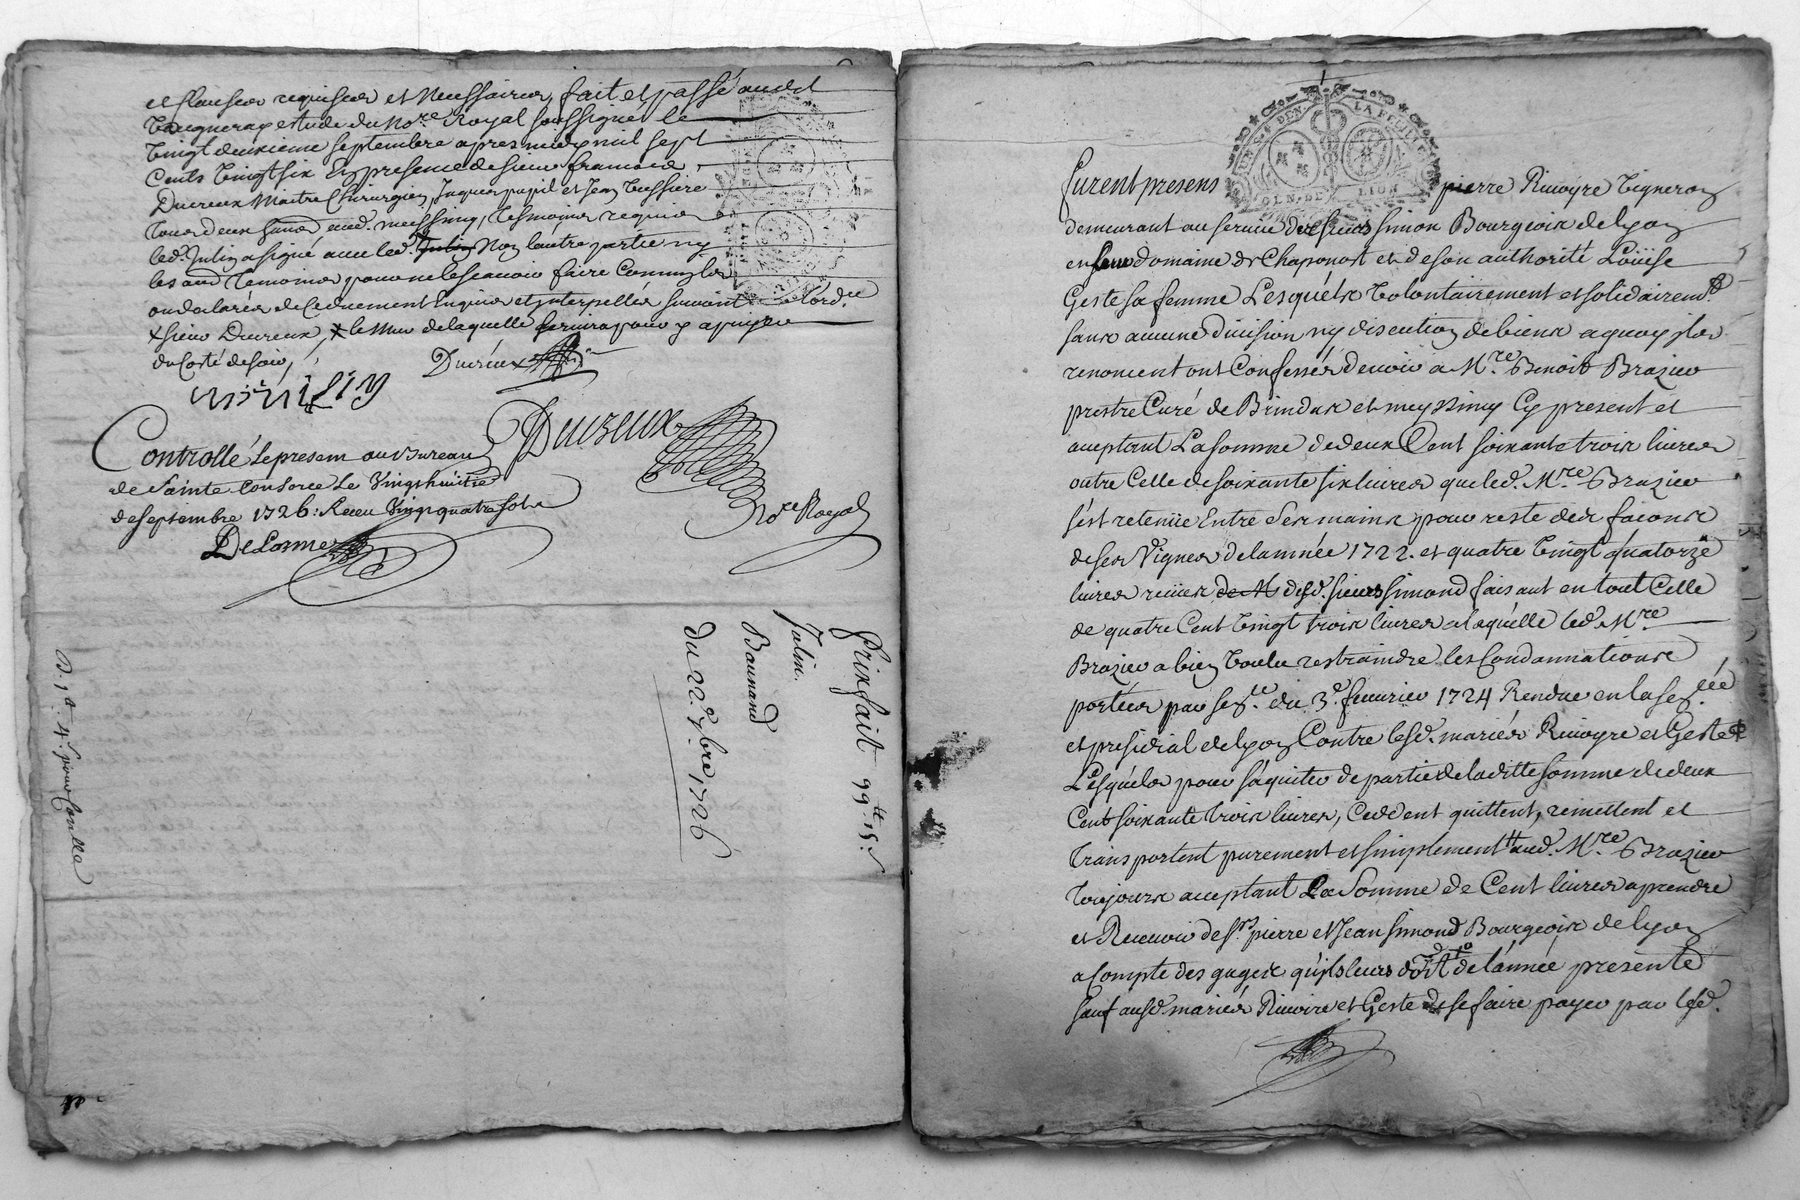 et clauses requises et necessaires, fait et passé aud.t
Vaugneray etude du no.re Royal soussigné le
Vingt deuxieme septembre apres midy mil sept
Cents Vingt six En presence de sieur francois
Ducreux Maitre Chirurgien, Jaques pupil et Jean Bussiere
tous deux aud. messimy, tesmoins requis
led. Julin a signé avec led. Julin Non l'autre partie ny
les aud. temoins pour ne le scavoir faire Comm'yls
ont declarés de ce duement Enquis et Interpellés suivant l'ord.ce
x sieur Ducreux, x le Mur de laquelle servira pour y apuyer
du Costé de soir,
Ducreux
Julin
Controllé le present au Bureau
de Sainte Consorce Le Vingt huitie
de Septembre 1726: Receu Vingt quatre sols
DeLorme
Ducreux
No.re Royal
Prixfait 99.tt 15.s
Julin.
Baunand
du 22.e 7.bre 1726
D. 1.tt 4.s pour Conlle
UN S.8 DEN. LA FEUILLE
GEN. DE LION
furent presens pierre Rivoyre Vigneron
demeurant au service des sieurs Simon Bourgeois de lyon
en leur domaine de Chaponost et de son authorité Loüise
Geste sa femme Lesquéls Volontairement et solidairem.t
sans aucune division ny discution de biens a quoy ils
renoncent ont Confessés devoir a M.re Benoit Brazier
prestre Curé de Brindas et meyssimy Cy present et
acceptant La somme de deux Cent soixante trois livres
outre Celle de soixante six livres que led. M.re Brazier
s'est retenüe Entre Ses mains pour reste des facons
de ses Vignes de lannée 1722. et quatre Vingt quatorze
livres reçues de M desd. sieurs simond faisant en tout Celle
de quatre Cent Vingt trois livres a laquélle led. M.re
Brazier a bien Voulu restraindre les Condannations
portées par sen.ce du 3.e fevrier 1724 Rendue en la sen.cée
et presidial de lyon Contre lesd. mariés Rivoyre et Geste
Lesquéls pour s'aquiter de partie de la ditte somme de deux
Cent soixante trois livres, Ceddent quittent, remettent et
transportent purement et simplement aud. M.re Brazier
toujours acceptant La Somme de Cent livres a prendre
et Recevoir de s.rs pierre et Jean simond Bourgeois de lyon
a Compte des gages qu'ils leurs doit de l'année presente
sauf ausd. mariés Rivoire et Geste de se faire payer par lesd.